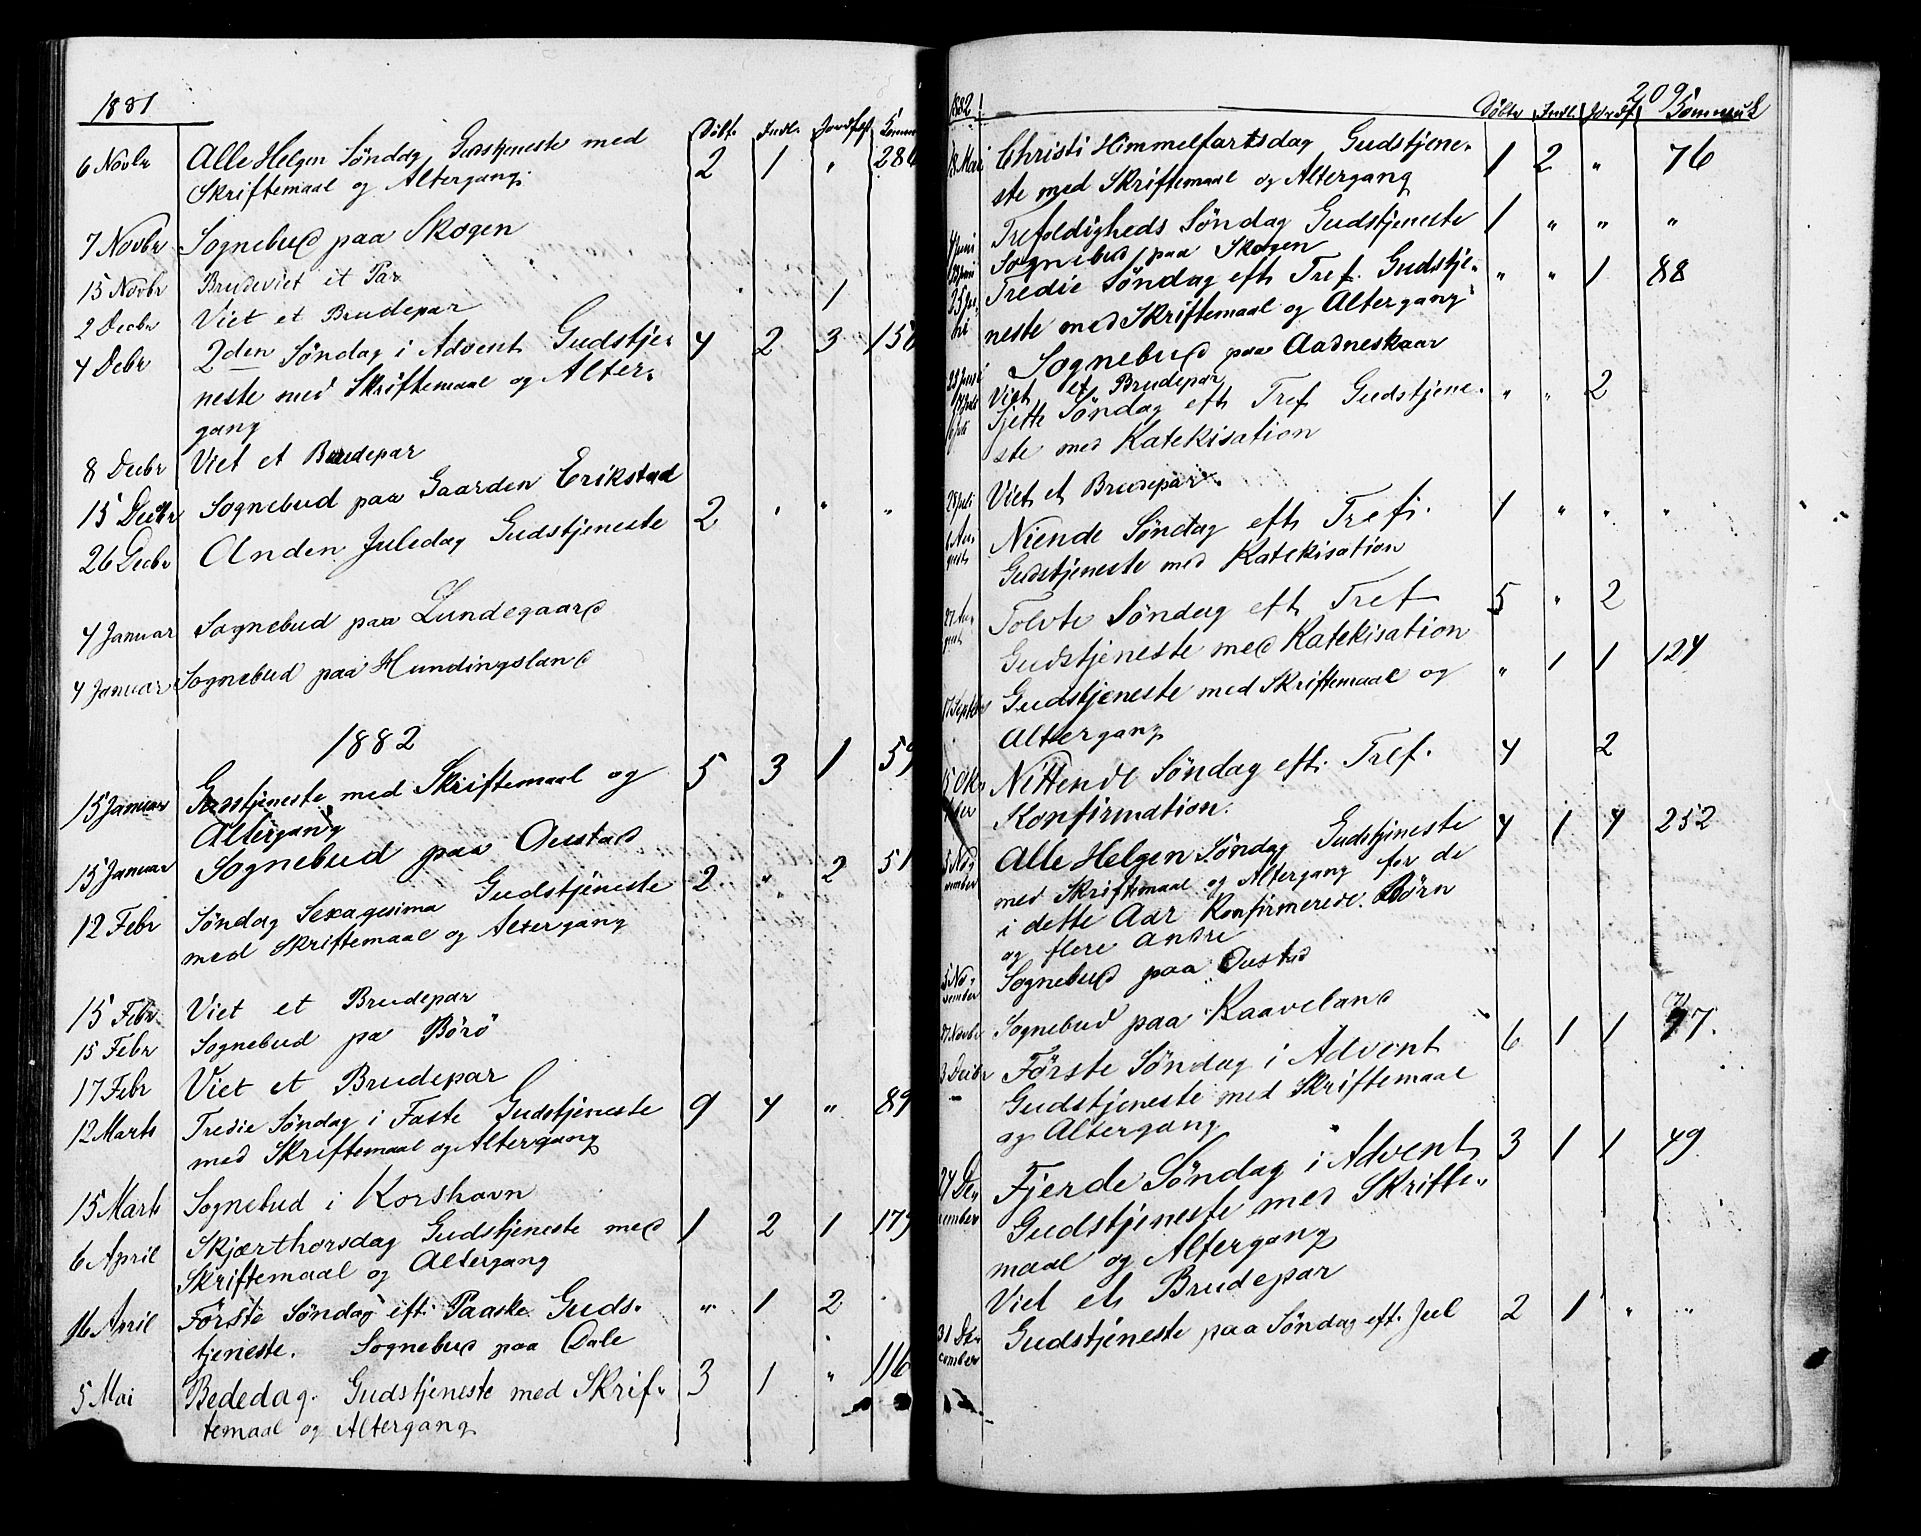 1881
Døbt. Indl. Jordfst
6 Novbr Alle Helgen Søndag Gudstjeneste med 2 1 "
Skriftemaal og Altergang.
7 Novbr Sognebud paa Skogen
15 Novbr Brudeviet et Par
2 Decbr Viet et Brudepar 1
4 Debr 2den Søndag i Advent Gudstje- 4 2 3
neste med Skriftemaal og Alter-
gang
8 Decbr Viet et Brudepar
15 Decbr Sognebud paa Gaarden Erikstad
26 Decbr Anden Juledag Gudstjeneste 2 " " "
4 Januar Sognebud paa Lundegaard
4 Januar Sognebud paa Hundingsland
1882
15 Januar Gudstjeneste med Skriftemaal og 5 3 1 59
Altergang
15 Januar Sognebud paa Oustad
12 Febr Søndag Sexagesima Gudstjeneste 2 " 2 51
med Skriftemaal og Altergang
15 Febr. Viet et Brudepar
15 Febr Sognebud pa Börö
17 Febr Viet et Brudepar
12 Marts Tredie Søndag i Faste Gudstjeneste 9 4 " 89
med Skriftemaal og Altergang
15 Marts Sognebud i Korshavn
6 April Skjærthorsdag Gudstjeneste med 1 2 1
Skriftemaal og Altergang
16 April Første Søndag eft. Paaske Guds- " 1 2
tjeneste. Sognebud paa Dale
5 Mai Bededag. Gudstjeneste med Skrif- 3 1 " 116
temaal og Altergang
209
1882 Døbte Indl. Jordf
18 Mai Christi Himmelfartsdag Gudstjene- 1 2 " 76
ste med Skriftemaal og Altergang
4 Juni Trefoldigheds Søndag Gudstjeneste 1 " " "
Sognebud paa Skogen
25 Ju- Tredie Søndag eft Tref. Gudstje- " " 1 88
ni neste med Skriftemaal og Altergang
Sognebud paa Aadneskaar
Viet et Brudepar
Sjette Søndag eft Tref Gudstjene- " " 2
ste med Katekisation
28 Juli Viet et Brudepar.
6 Au- Niende Søndag eft Tref. 1 " " "
gust Gudstjeneste med Katekisation
27 Au- Tolvte Søndag eft Tref 5 " 2
gust Gudstjeneste med Katekisation
17 Septbr Gudstjeneste med Skriftemaal og " 1 1 124
Altergang
15 Ok- Nittende Søndag eft. Tref. 4 2
tober Konfirmation.
5 No- Alle Helgen Søndag Gudstjeneste 4 1 4 252
vember med Skriftemaal og Altergang for de
i dette Aar Konfirmerede Børn
og flere Andre
5 No- Sognebud paa Oustad
vember
Novbr Sognebud paa Raaveland
3 Decbr Første Søndag i Advent 6 1 1
Gudstjeneste med Skriftemaal
og Altergang
24 De- Fjerde Søndag i Advent 3 1 1 49
cember Gudstjeneste med Skrifte-
maal og Altergang
Viet et Brudepar
31 De- Gudstjeneste paa Søndag eft. Jul 2 1 " "
cember